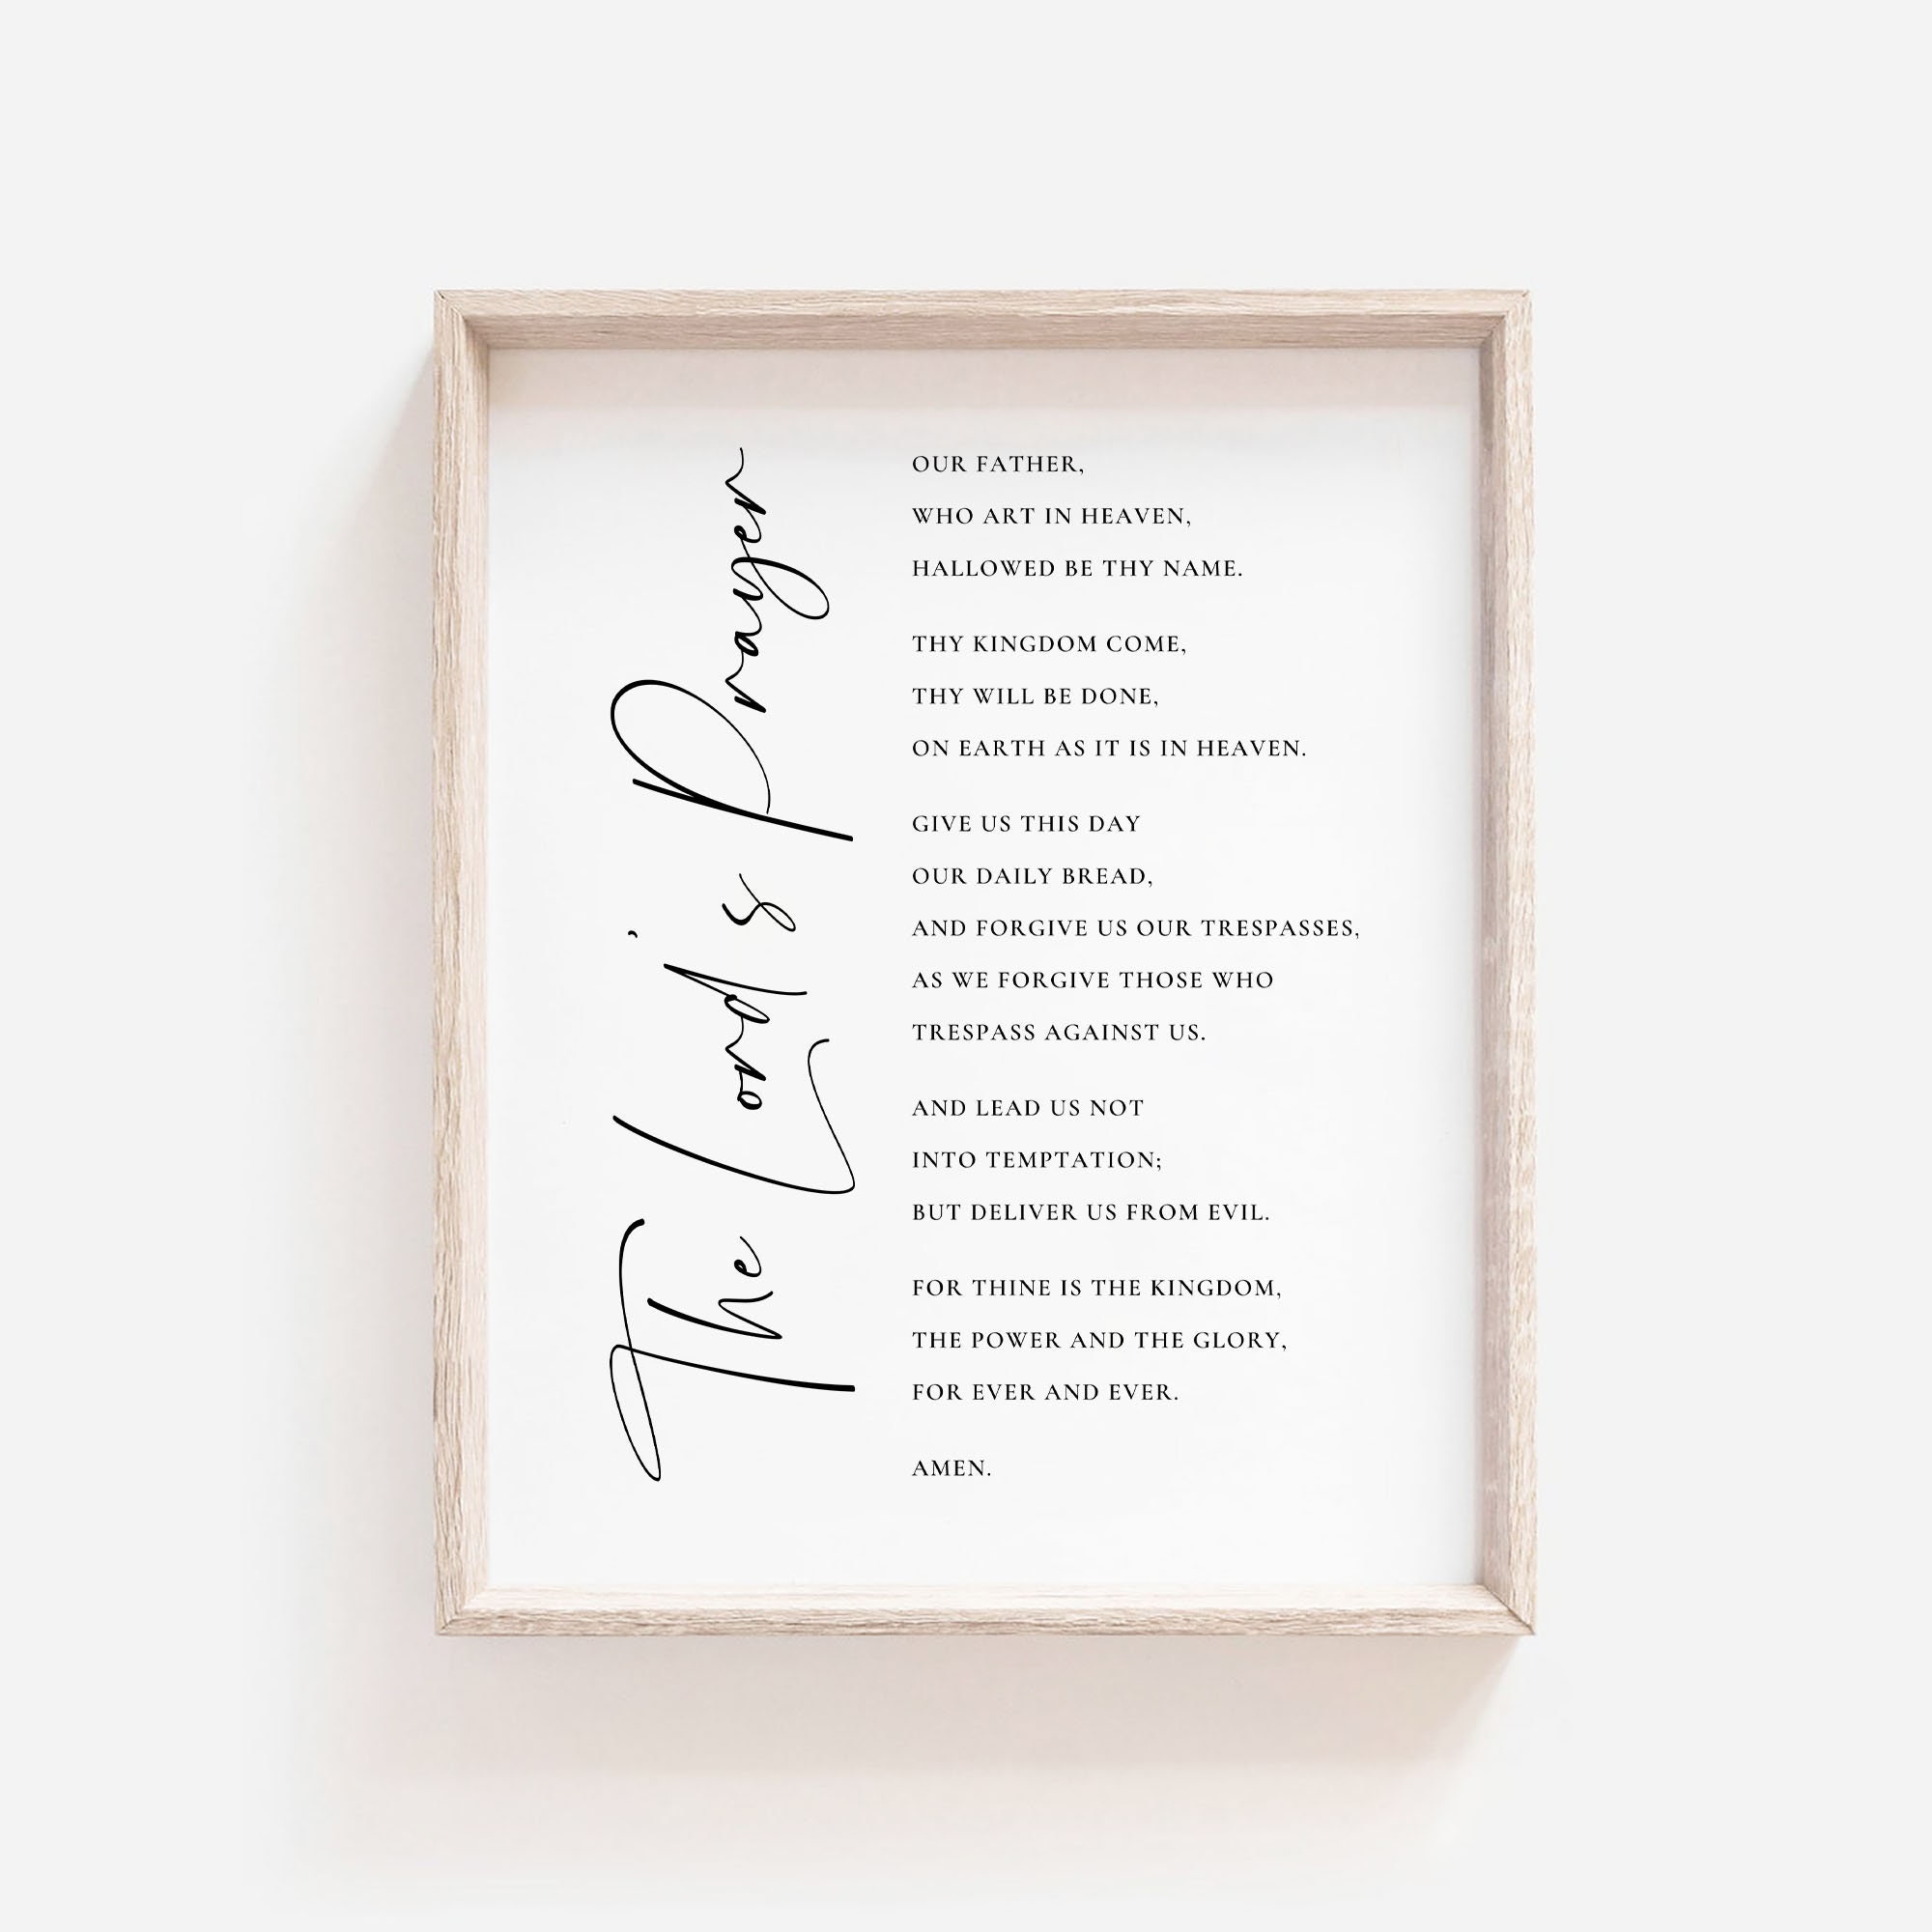 The Lord's Prayer
OUR FATHER,
WHO ART IN HEAVEN,
HALLOWED BE THY NAME.
THY KINGDOM COME,
THY WILL BE DONE,
ON EARTH AS IT IS IN HEAVEN.
GIVE US THIS DAY
OUR DAILY BREAD,
AND FORGIVE US OUR TRESPASSES,
AS WE FORGIVE THOSE WHO
TRESPASS AGAINST US.
AND LEAD US NOT
INTO TEMPTATION;
BUT DELIVER US FROM EVIL.
FOR THINE IS THE KINGDOM,
THE POWER AND THE GLORY,
FOR EVER AND EVER.
AMEN.